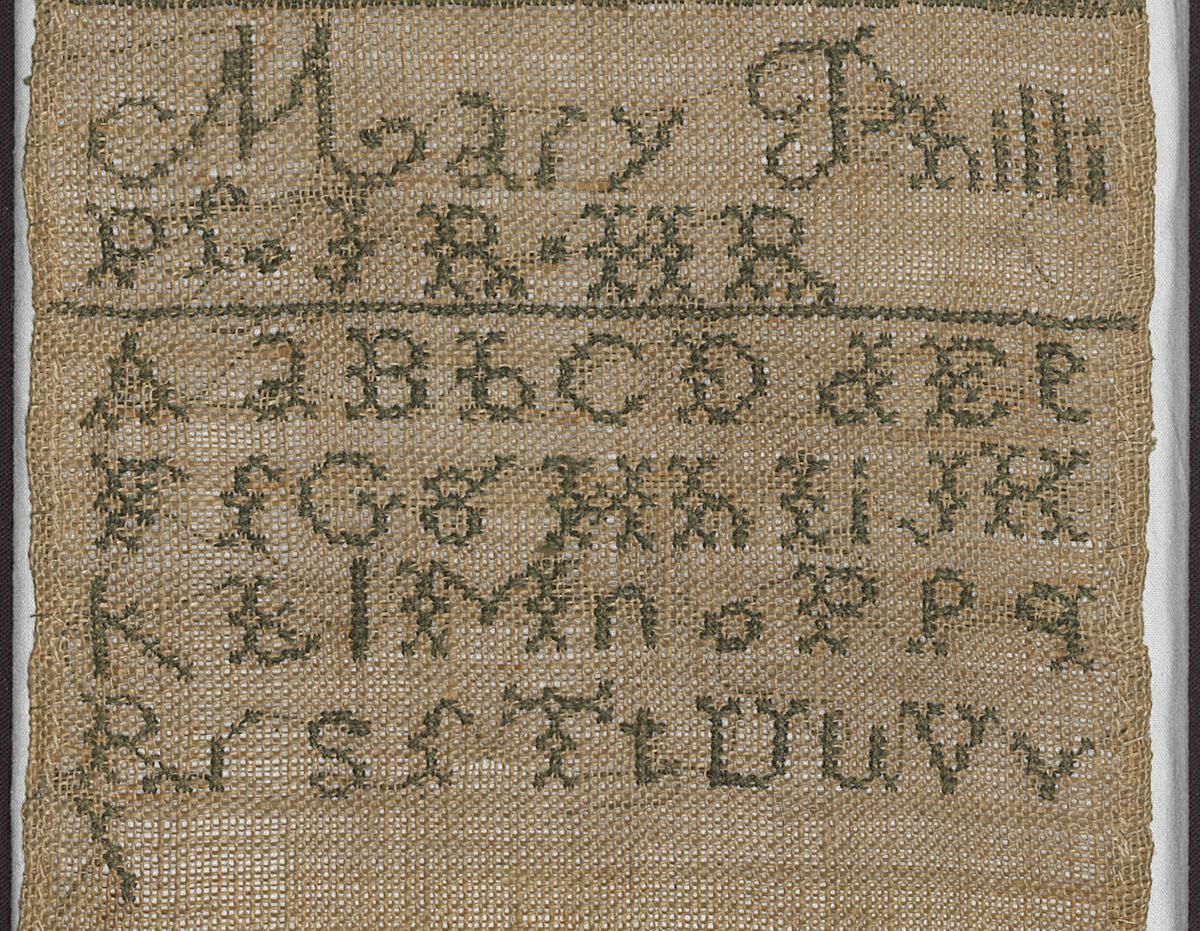 Mary Philli
Pf. I R · H R
A a B b C D d E e
F f G g H h I i J K
K L l M n o P p q
R r s ſ T t U u V v